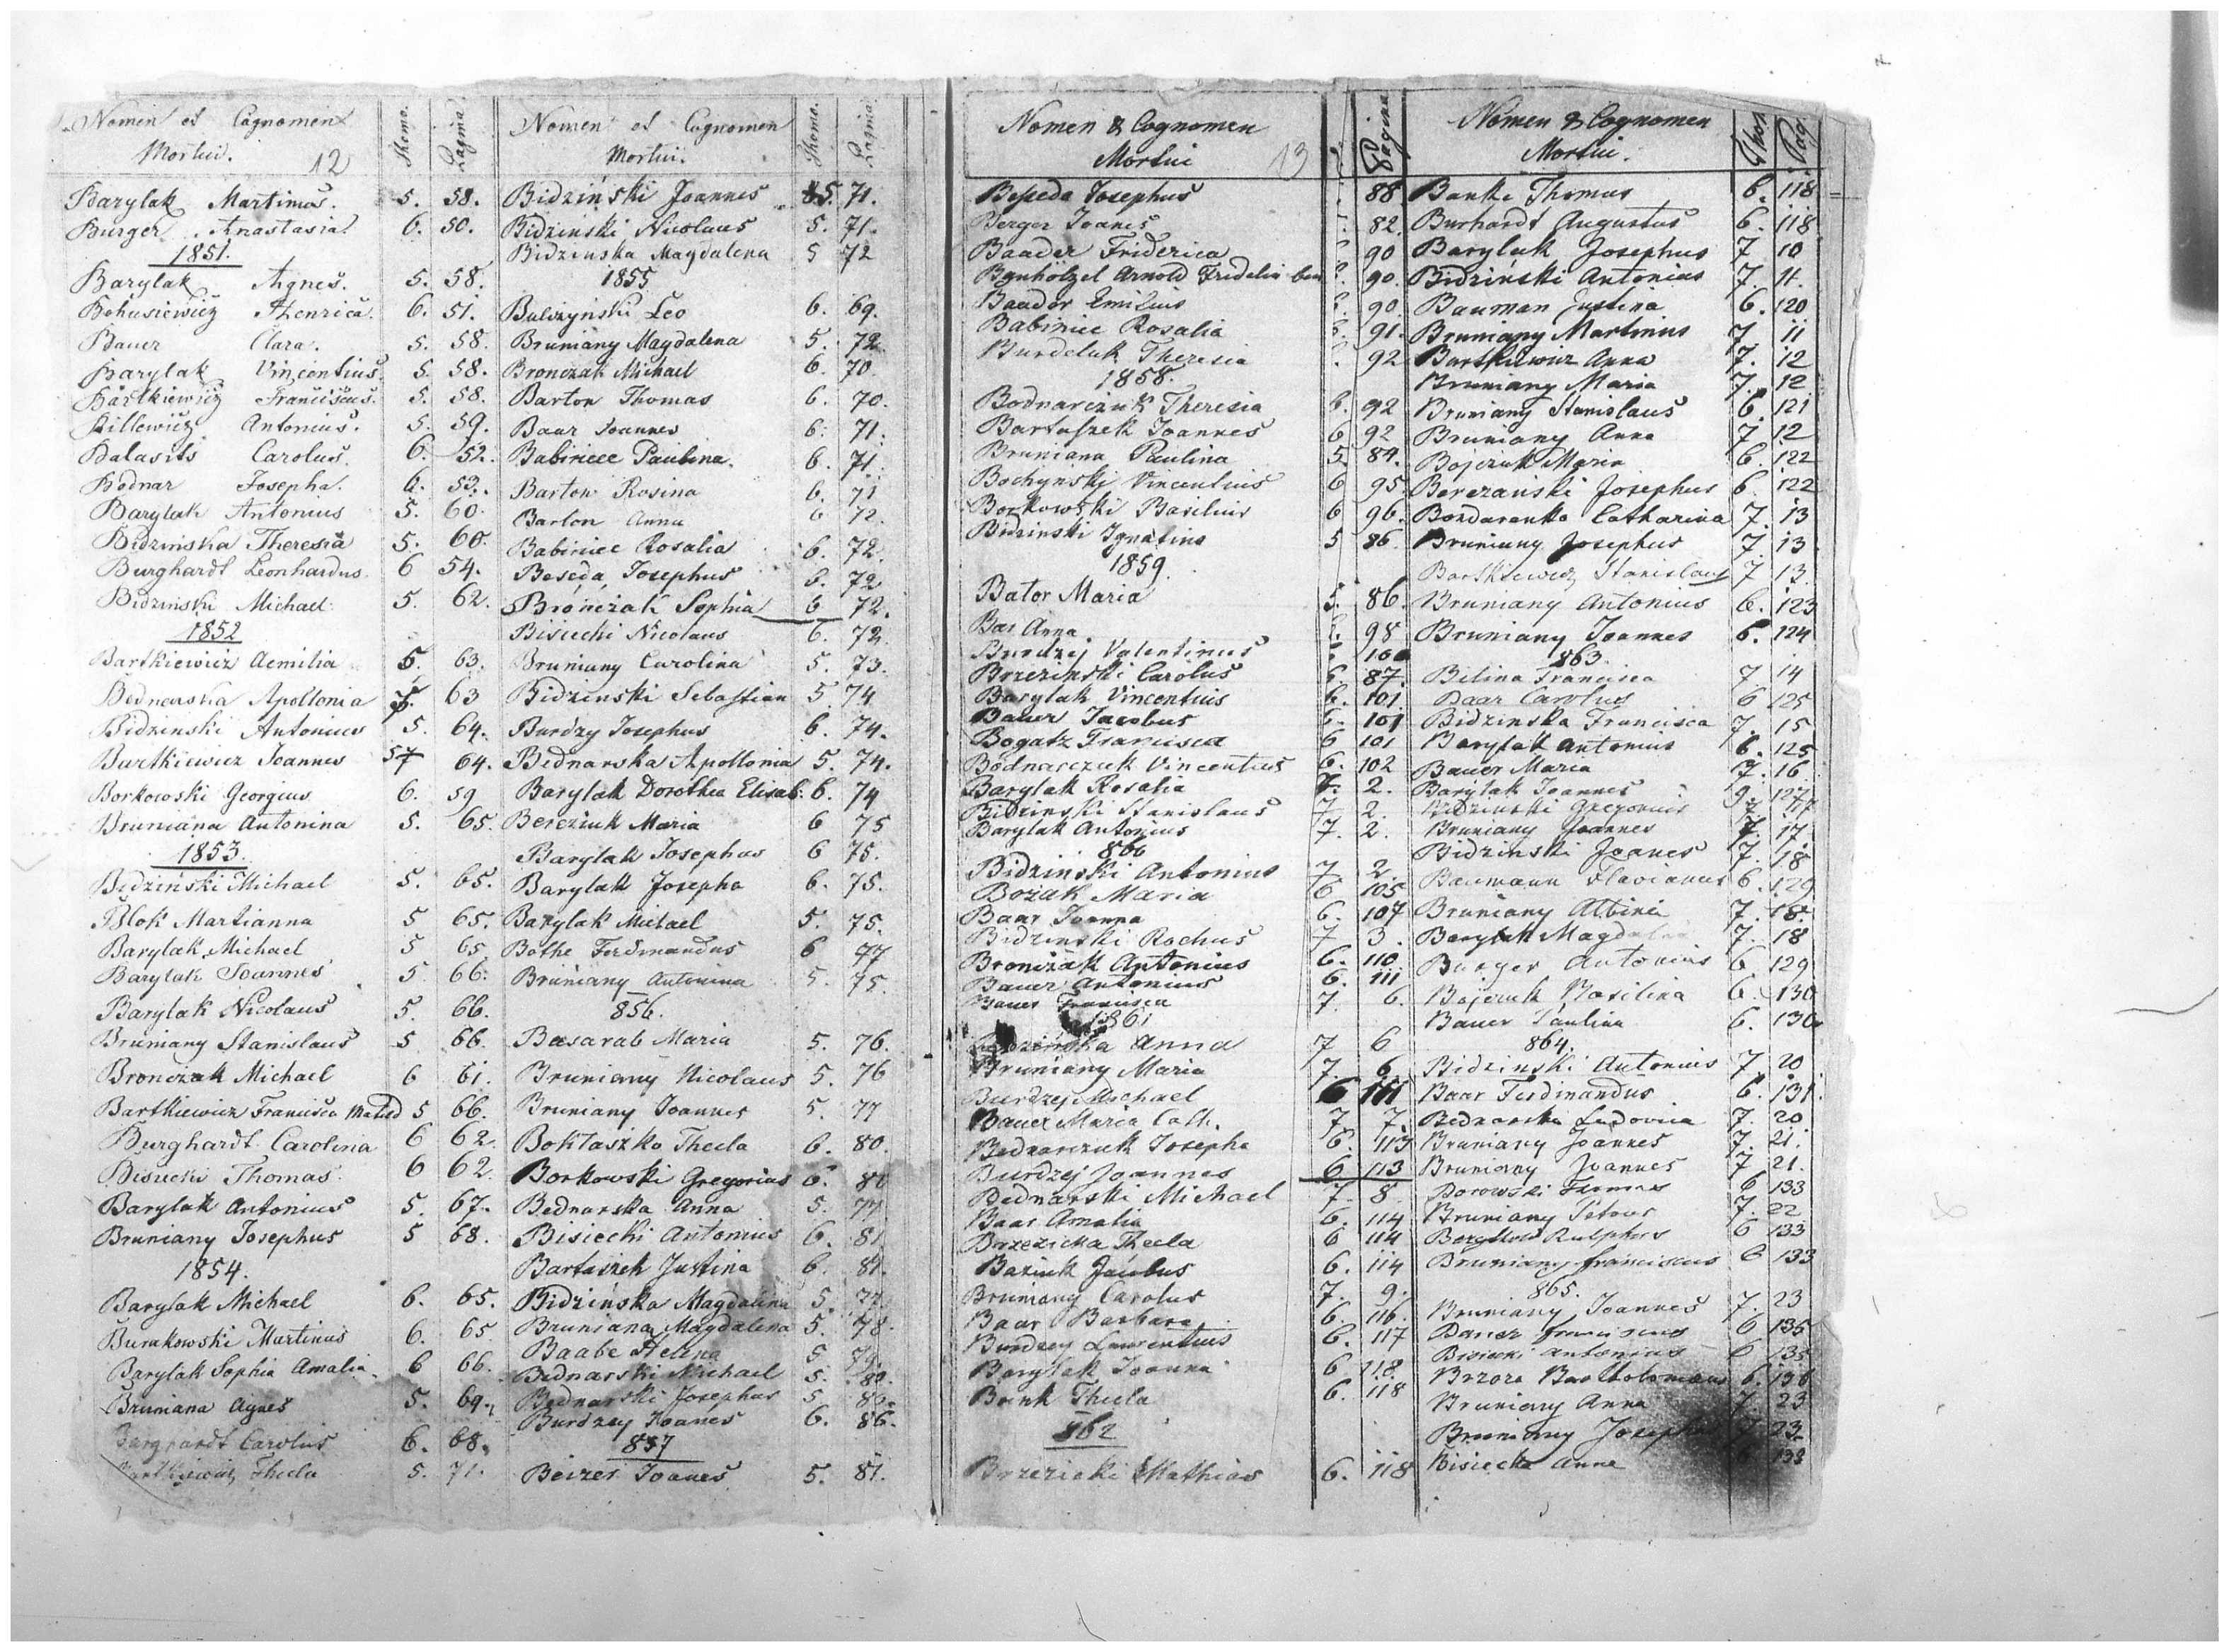 Nomen et Cognomen
Mortui. 12
Thomo. Pagina
Barylak Martinus. 5. 58.
Burger Anastasia 6. 50.
1851.
Barylak Agnes. 5. 58.
Bohusiewicz Henrica. 6. 51.
Bauer Clara. 5. 58.
Barylak Vincentius. 5. 58.
Bartkiewicz Franciscus. 5. 58.
Billewicz Antonius. 5. 59.
Balasits Carolus. 6. 52.
Bodnar Josepha. 6. 53.
Barylak Antonius 5. 60.
Bidzinska Theresia 5. 60.
Burghardt Leonhardus 6 54.
Bidzinski Michael 5. 62.
1852
Bartkiewicz Aemilia 5. 63.
Bednarska Apollonia 5. 63
Bidzinski Antonius 5. 64.
Bartkiewicz Joannes 5 64.
Borkowski Georgius 6. 59
Bruniana Antonina 5. 65.
1853.
Bidzinski Michael 5. 65.
Blok Martianna 5 65.
Barylak Michael 5 65
Barylak Joannes 5 66.
Barylak Nicolaus 5. 66.
Bruniany Stanislaus 5 66.
Bronczak Michael 6 61.
Bartkiewicz Francisca 5 66.
Burghardt Carolina 6 62.
Bisiecki Thomas 6 62.
Barylak Antonius 5. 67.
Bruniany Josephus 5 68.
1854.
Barylak Michael 6. 65.
Burakowski Martinus 6. 65
Barylak Sophia Amalia 6 66.
Bruniana Agnes 5. 69.
Burghardt Carolus 6. 68.
Bartkiewicz Thecla 5. 71.
Nomen et Cognomen
Mortui.
Thomo. Pagina
Bidziński Joannes 5. 71.
Bidzinski Nicolaus 5. 71.
Bidzinska Magdalena 5 72
1855
Bulszynski Leo 6. 69.
Bruniany Magdalena 5. 72.
Bronczak Michael 6. 70.
Barton Thomas 6. 70.
Baar Joannes 6. 71.
Babiniec Paulina. 6. 71.
Barton Rosina 6. 71
Barton Anna 6 72.
Babiniec Rosalia 6. 72.
Beseda Josephus 6. 72
Bronczak Sophia 6 72.
Bisiecki Nicolaus 6. 72.
Bruniany Carolina 5. 73.
Bidzinski Sebastian 5 74
Burdzy Josephus 6. 74.
Bednarska Apollonia 5. 74.
Barylak Dorothea Elisab. 6. 74
Bereziuk Maria 6 75
Barylak Josephus 6 75.
Barylak Josepha 6. 75.
Barylak Michael 5. 75.
Bothe Ferdinandus 6 77
Bruniany Antonina 5. 75.
856.
Basarab Maria 5. 76.
Bruniany Nicolaus 5. 76
Bruniany Joannes 5. 77
Boktaszko Thecla 6. 80.
Borkowski Gregorius 6. 81
Bednarska Anna 5. 77
Bisiecki Antonius 6. 81
Bartaszek Justina 6. 81.
Bidzinska Magdalena 5. 77.
Bruniana Magdalena 5. 78.
Baabe Helena 5 79.
Bednarski Michael 5. 80.
Bednarski Josephus 5 80.
Burdzey Joanes 6. 86.
857
Beizer Joanes 5. 81.
Nomen & Cognomen
Mortui 13
Pagina
Beseda Josephus 88
Berger Joanes 82.
Baader Friderica 90
Arnold Fridolin 90.
Baador Emilius 90
Babiniec Rosalia 91.
Burdeluk Theresia 92
1858.
Bodnarczuk Theresia 6. 92
Bartaszek Joannes 6 92
Bruniana Paulina 5 84.
Bochynski Vincentius 6 95
Borkowski Basilius 6 96.
Bidzinski Ignatius 5 86
1859.
Bator Maria 5. 86.
Bas Anna 98
Burdzej Valentinus 100
Brzezinski Carolus 87.
Barylak Vincentius 6. 101
Bauer Jacobus 6. 101
Bogatz Francisca 6 101
Bodnarczuk Vincentius 6. 102
Barylak Rosalia 2.
Bidzinski Stanislaus 7 2.
Barylak Antonius 7. 2.
860
Bidzinski Antonius 7 2.
Bozak Maria 6 105
Baar Joanna 6. 107
Bidzinski Rochus 7 3.
Bronczak Antonius 6. 110
Bauer Antonius 6. 111
Bauer Francisca 7. 6.
1861
Bidzinska Anna 7 6
Bruniany Maria 7. 6.
Burdzej Michael 6 111
Bauer Maria Cath. 7 7.
Bednarczuk Josepha 6. 113
Burdzej Joannes 6 113
Bednarski Michael 7. 8
Baar Amalia 6. 114
Brzezicka Thecla 6 114
Baziuk Jacobus 6. 114
Bruniany Carolus 7. 9.
Baar Barbara 6. 116.
Burdzey Laurentius 6. 117
Barylak Joanna 6 118.
Bonk Thecla 6. 118
862
Brzezicki Mathias 6. 118
Nomen & Cognomen
Mortui.
Thom Pag.
Banke Thomas 6. 118
Burhardt Augustus 6. 118
Barylak Josephus 7 10
Bidziński Antonius 7 11.
Bauman Justina 6. 120
Bruniany Martinus 7 11
Bartkiewicz Anna 7. 12
Bruniany Maria 7. 12
Bruniany Stanislaus 6. 121
Bruniany Anna 7 12
Bojczuk Maria 6. 122
Berezański Josephus 6. 122
Bondarenko Catharina 7. 13
Bruniany Josephus 7. 13
Bartkiewicz Stanislaus 7 13.
Bruniany Antonius 6. 123
Bruniany Joannes 6. 124
863.
Bilina Francisca 7 14
Baar Carolus 6 125
Bidzinska Francisca 7. 15
Barylak Antonius 6. 125
Bauer Maria 7. 16
Barylak Joannes 127
Bidzinski Gregorius 7 17
Bruniany Joannes 7. 17.
Bidzinski Joanes 7. 18
Baumann Flavianus 6. 129
Bruniany Albina 7. 18.
Barylak Magdalena 7. 18
Burger Antonius 6 129
Bojczuk Basilina 6. 130
Bauer Paulina 6. 130
864.
Bidzinski Antonius 7 20
Baar Ferdinandus 6. 131.
Bednarska Ludovica 7. 20
Bruniany Joannes 7. 21.
Bruniany Joannes 7 21.
Borowski Thomas 6 133
Bruniany Petrus 7. 22
Rulphus 6 133
Bruniany Franciscus 6 133
865.
Bruniany Joannes 7. 23
Bauer Franciscus 6 135
Bisiecki Antonius 6 135
Brzoza Bartholomaeus 6. 136
Bruniany Anna 7. 23
Bruniany Josepha 7 23.
Bisiecka Anna 138